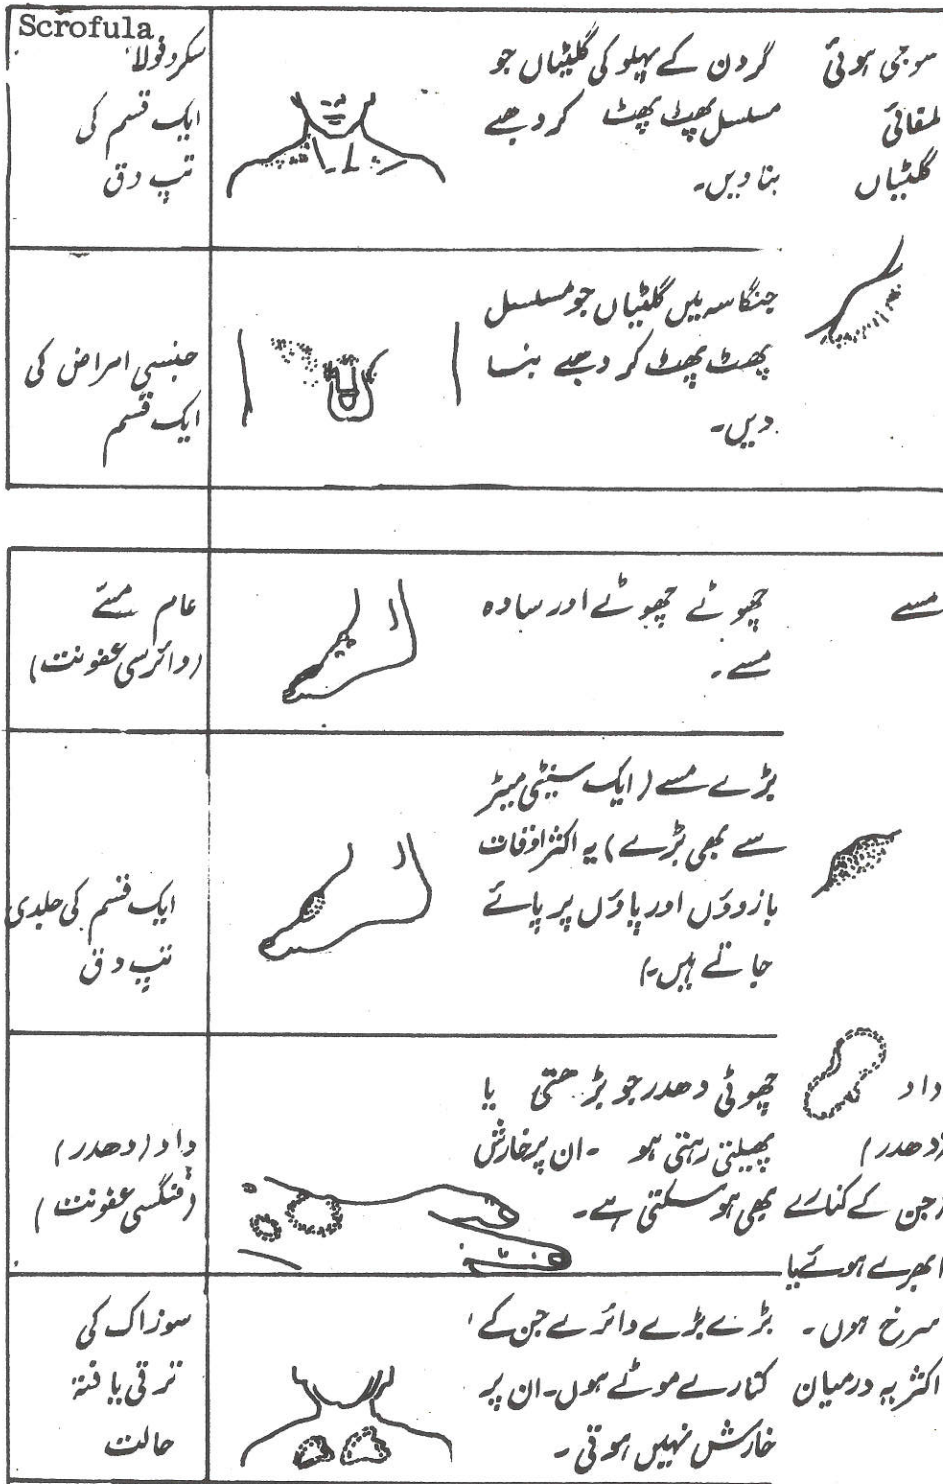 سوجی ہوئی
لمفائی
گلٹیاں
گردن کے پہلو کی گلٹیاں جو
مسلسل پھٹ پھٹ کر دھبے
بنا دیں۔
Scrofula
سکروفولا
ایک قسم کی
تپ دق
چنگاسہ میں گلٹیاں جو مسلسل
پھٹ پھٹ کر دھبے بنا
دیں۔
جنسی امراض کی
ایک قسم
مسے
چھوٹے چھوٹے اور سادہ
مسے۔
عام مسے
(وائرسی عفونت)
بڑے مسے (ایک سینٹی میٹر
سے بھی بڑے) یہ اکثر اوقات
بازوؤں اور پاؤں پر پائے
جاتے ہیں۔)
ایک قسم کی جلدی
تپ دق
داد
(دھدر)
(جن کے کنارے
ابھرے ہوئے یا
سرخ ہوں۔
اکثر یہ درمیان
چھوٹی دھدر جو بڑھتی یا
پھیلتی رہتی ہو۔ ان پر خارش
بھی ہو سکتی ہے۔
داد (دھدر)
(فنگسی عفونت)
بڑے بڑے دائرے جن کے
کنارے موٹے ہوں۔ ان پر
خارش نہیں ہوتی۔
سوزاک کی
ترقی یافتہ
حالت